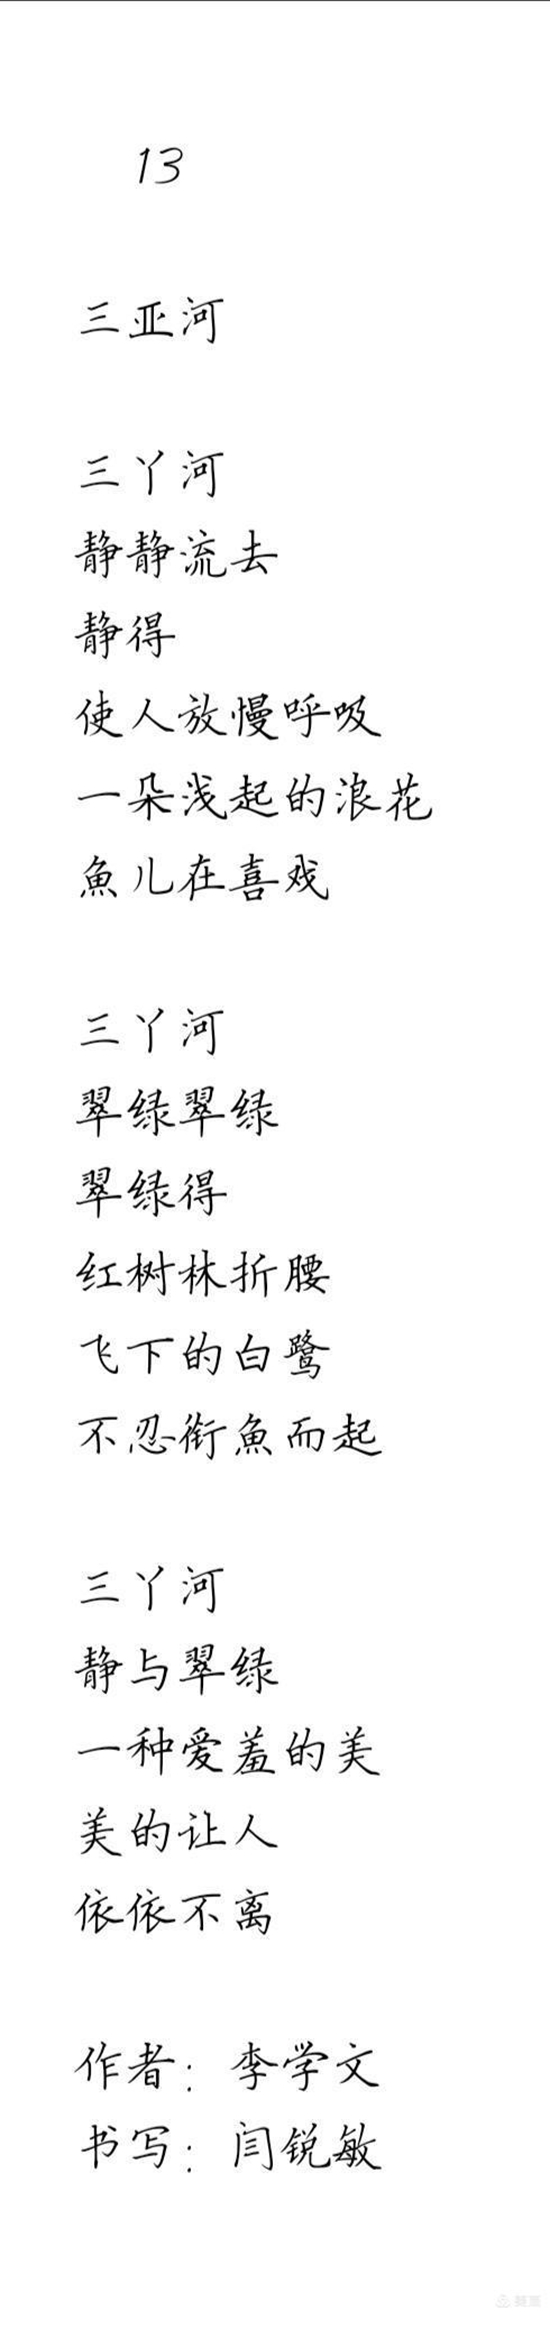 13
三亚河
三丫河
静静流去
静得
使人放慢呼吸
一朵浅起的浪花
魚儿在喜戏
三丫河
翠绿翠绿
翠绿得
红树林折腰
飞下的白鹭
不忍衔魚而起
三丫河
静与翠绿
一种爱羞的美
美的让人
依依不离
作者：李学文
书写：闫锐敏